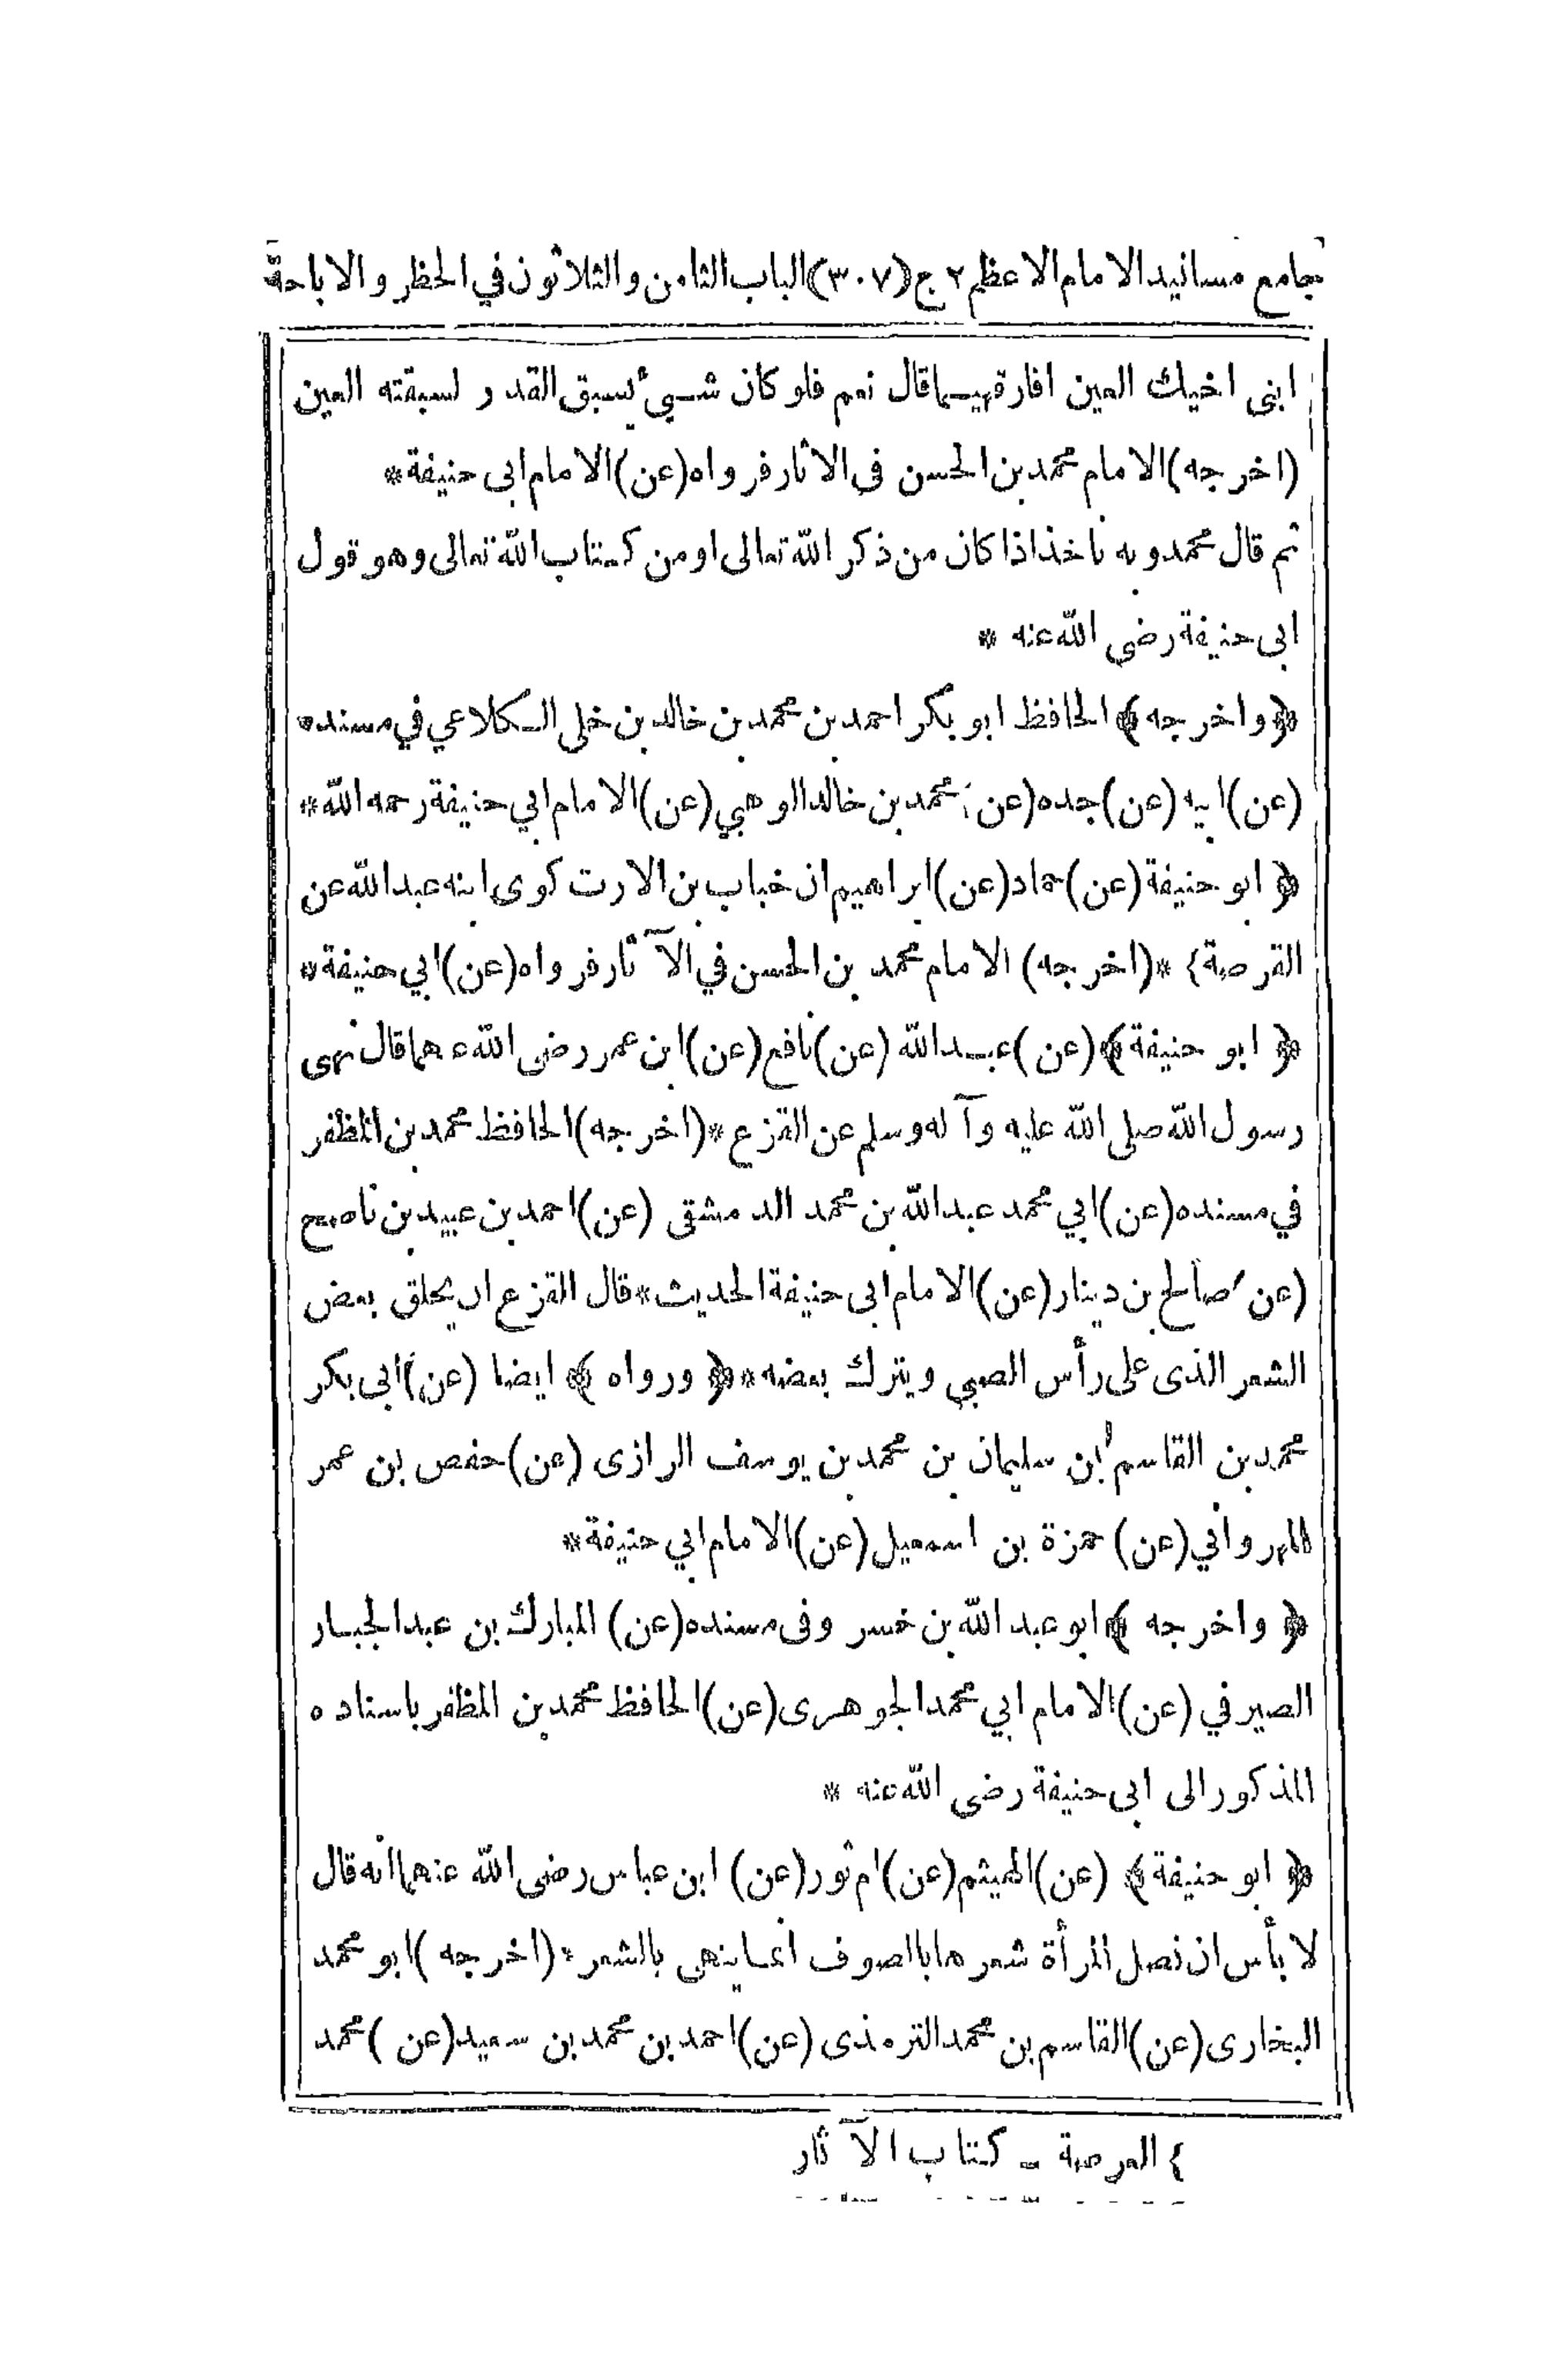 جامع مسانيد الامام الاعظم ٢ ج (٣٠٧) الباب الثامن والثلاثون في الحظر والاباحة
ابنى اخيك العين افارقيهما قال نعم فلو كان شيء يسبق القدر لسبقته العين
(اخرجه) الامام محمد بن الحسن فى الاثار فرواه (عن) الامام ابى حنيفة *
ثم قال محمد وبه ناخذ اذا كان من ذكر الله تعالى او من كتاب الله تعالى وهو قول
ابى حنيفة رضى الله عنه *
﴿ واخرجه ﴾ الحافظ ابو بكر احمد بن محمد بن خالد بن خلى الكلاعي في مسنده
(عن) ابيه (عن) جده (عن) محمد بن خالد الوهبي (عن) الامام ابي حنيفة رحمه الله *
﴿ ابو حنيفة (عن) حماد (عن) ابراهيم ان خباب بن الارت كوى ابنه عبد الله عن
القرصة} * (اخرجه) الامام محمد بن الحسن في الآثار فرواه (عن) ابي حنيفة *
﴿ ابو حنيفة ﴾ (عن) عبد الله (عن) نافع (عن) ابن عمر رضى الله عنهما قال نهى
رسول الله صلى الله عليه وآله وسلم عن القزع * (اخرجه) الحافظ محمد بن المظفر
في مسنده (عن) ابي محمد عبد الله بن محمد الدمشقى (عن) احمد بن عبيد بن ناصح
(عن) صالح بن دينار (عن) الامام ابى حنيفة الحديث * قال القزع ان يحلق بعض
الشعر الذى على رأس الصبي ويترك بعضه * ﴿ ورواه ﴾ ايضا (عن) ابى بكر
محمد بن القاسم ابن سليمان بن محمد بن يوسف الرازى (عن) حفص بن عمر
المهرواني (عن) حمزة بن اسمعيل (عن) الامام ابي حنيفة *
﴿ واخرجه ﴾ ابو عبد الله بن خسرو فى مسنده (عن) المبارك بن عبد الجبار
الصيرفي (عن) الامام ابي محمد الجوهرى (عن) الحافظ محمد بن المظفر باسناده
المذكور الى ابى حنيفة رضى الله عنه *
﴿ ابو حنيفة ﴾ (عن) الهيثم (عن) ام ثور (عن) ابن عباس رضى الله عنهما انه قال
لا بأس ان تصل المرأة شعرها بالصوف انما ينهى بالشعر * (اخرجه) ابو محمد
البخارى (عن) القاسم بن محمد الترمذى (عن) احمد بن محمد بن سعيد (عن) محمد
} العرصة - كتاب الآثار